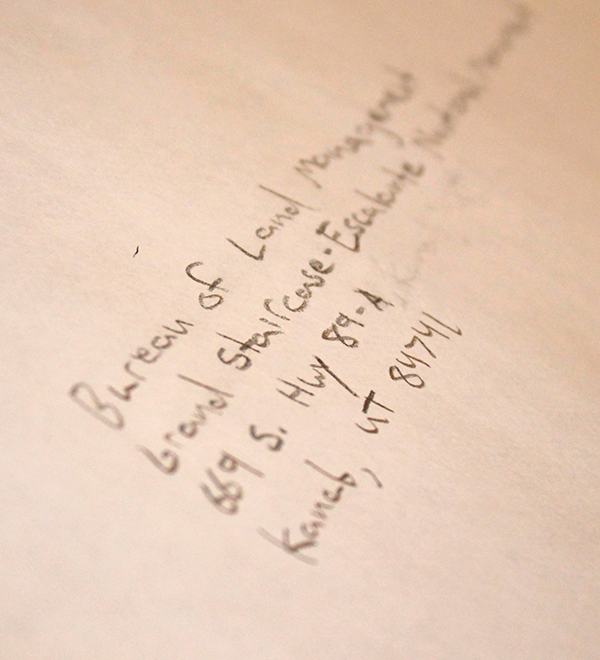 Bureau of Land Management
Grand Staircase-Escalante National Monument
669 S. Hwy 89-A
Kanab, UT 84741